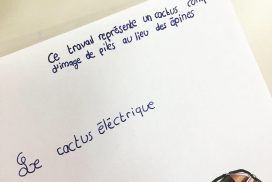 Ce travail représente un cactus
d'image de piles au lieu des épines
Le cactus éléctrique